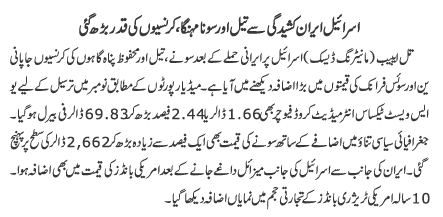 اسرائیل ایران کشیدگی سے تیل اور سونا مہنگا، کرنسیوں کی قدر بڑھ گئی
تل ابیب (مانیٹرنگ ڈیسک) اسرائیل پر ایرانی حملے کے بعد سونے، تیل اور محفوظ پناہ گاہوں کی کرنسیوں جاپانی
ین اور سوئس فرانک کی قیمتوں میں بڑا اضافہ دیکھنے میں آیا ہے۔ میڈیا رپورٹس کے مطابق نومبر میں ترسیل کے لیے یو
ایس ویسٹ ٹیکساس انٹرمیڈیٹ کروڈ فیوچر بھی 1.66 ڈالر یا 2.44 فیصد بڑھ کر 69.83 ڈالر فی بیرل ہو گیا۔
جغرافیائی سیاسی تناؤ میں اضافے کے ساتھ سونے کی قیمت بھی ایک فیصد سے زیادہ بڑھ کر 2,662 ڈالر کی سطح پر پہنچ
گئی۔ ایران کی جانب سے اسرائیل کی جانب میزائل داغے جانے کے بعد امریکی بانڈز کی قیمت میں بھی اضافہ ہوا۔
10 سالہ امریکی ٹریژری بانڈز کے تجارتی حجم میں نمایاں اضافہ دیکھا گیا۔